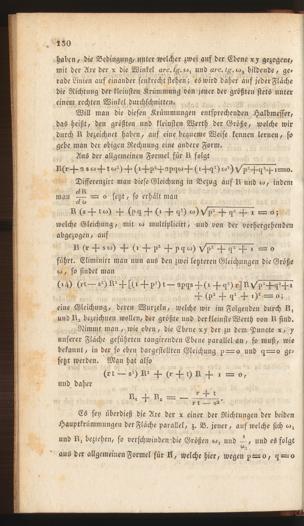 130
haben, die Bedingung, unter welcher zwei auf der Ebene xy gezogene,
mit der Are der x die Winkel arc. tg. ω, und arc. tg. ω, bildende, ge-
rade Linien auf einander senkrecht stehen; es wird daher auf jeder Fläche
die Richtung der kleinsten Krümmung von jener der größten stets unter
einem rechten Winkel durchschnitten.
Will man die diesen Krümmungen entsprechenden Halbmesser,
das heißt, den größten und kleinsten Werth der Größe, welche wir
durch R bezeichnet haben, auf eine bequeme Weise kennen lernen, so
gebe man der obigen Rechnung eine andere Form.
Aus der allgemeinen Formel für R folgt
R(r+2sω+tω²)+(1+p²+2pqω+(1+q²)ω²)√p²+q²+1=0.
Differenzirt man diese Gleichung in Bezug auf R und ω, indem
man dR/dω = 0 setzt, so erhält man
R (s + tω) + (pq + (1 + q²) ω) √p² + q² + 1 = 0;
welche Gleichung, mit ω multiplicirt, und von der vorhergehenden
abgezogen, auf
R (r + sω) + (1 + p² + pqω) √p² + q² + 1 = 0
führt. Eliminirt man nun aus den zwei letzteren Gleichungen die Größe
ω, so findet man
(14) (rt—s²) R² + [(1 + p²) t — 2pqs + (1 + q²) r] R√p²+q²+1
+ (p² + q² + 1)² = 0;
eine Gleichung, deren Wurzeln, welche wir im Folgenden durch R,
und R₂ bezeichnen wollen, der größte und der kleinste Werth von R sind.
Nimmt man, wie oben, die Ebene xy der zu dem Puncte x, y
unserer Fläche geführten tangirenden Ebene parallel an, so muß, wie
bekannt, in der so eben dargestellten Gleichung p = 0 und q = 0 ge-
setzt werden. Man hat also
(rt — s²) R² + (r + t) R + 1 = 0,
und daher
R, + R₂ = — (r + t)/(rt — s²).
Es sey überdieß die Are der x einer der Richtungen der beiden
Hauptkrümmungen der Fläche parallel, z. B. jener, auf welche sich ω,
und R, beziehen, so verschwinden die Größen ω, und 1/ω₂, und es folgt
aus der allgemeinen Formel für R, welche hier, wegen p = 0, q = 0